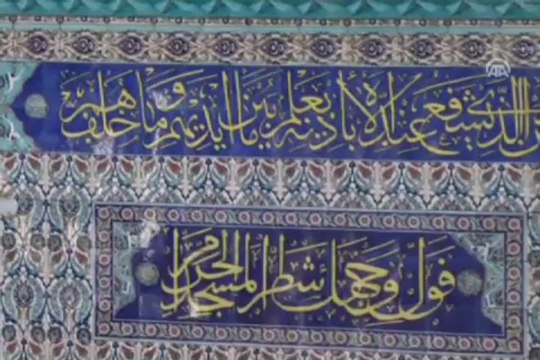 من الذي يشفع عنده إلا بإذنه يعلم ما بين أيديهم وما خلفهم
فول وجهك شطر المسجد الحرام